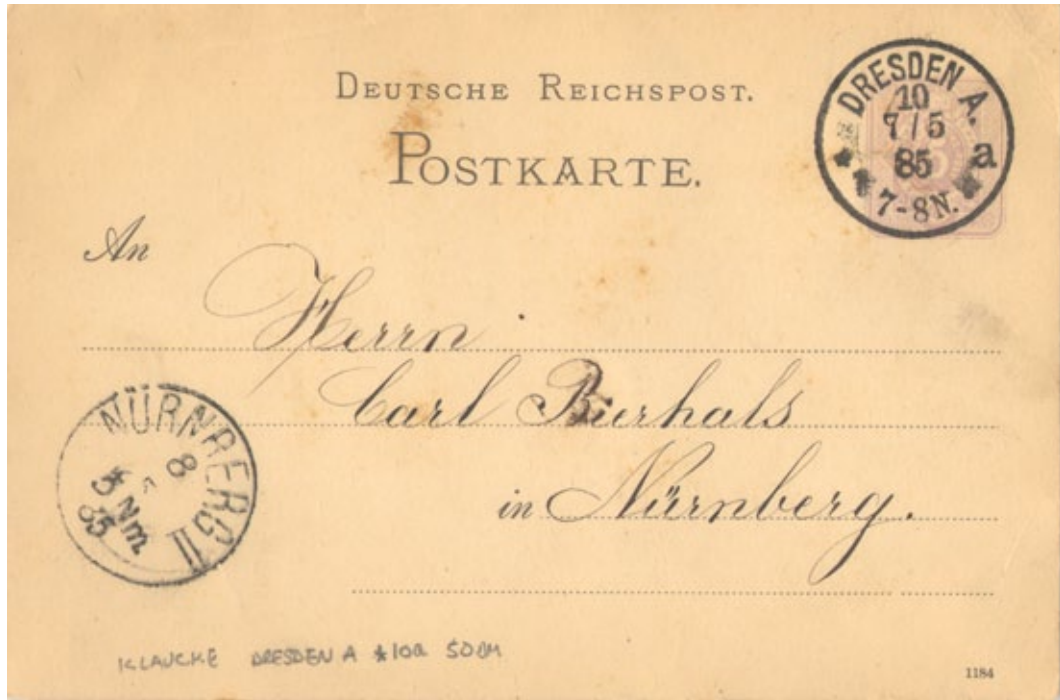 DEUTSCHE REICHSPOST.
POSTKARTE.
DRESDEN A.
10
7/5
85
a
7-8N.
An
Herrn
Carl Bierhals
in Nürnberg.
NÜRNBERG II
8
5
Nm
85
KLAUCKE DRESDEN A *10a 50DM
1184